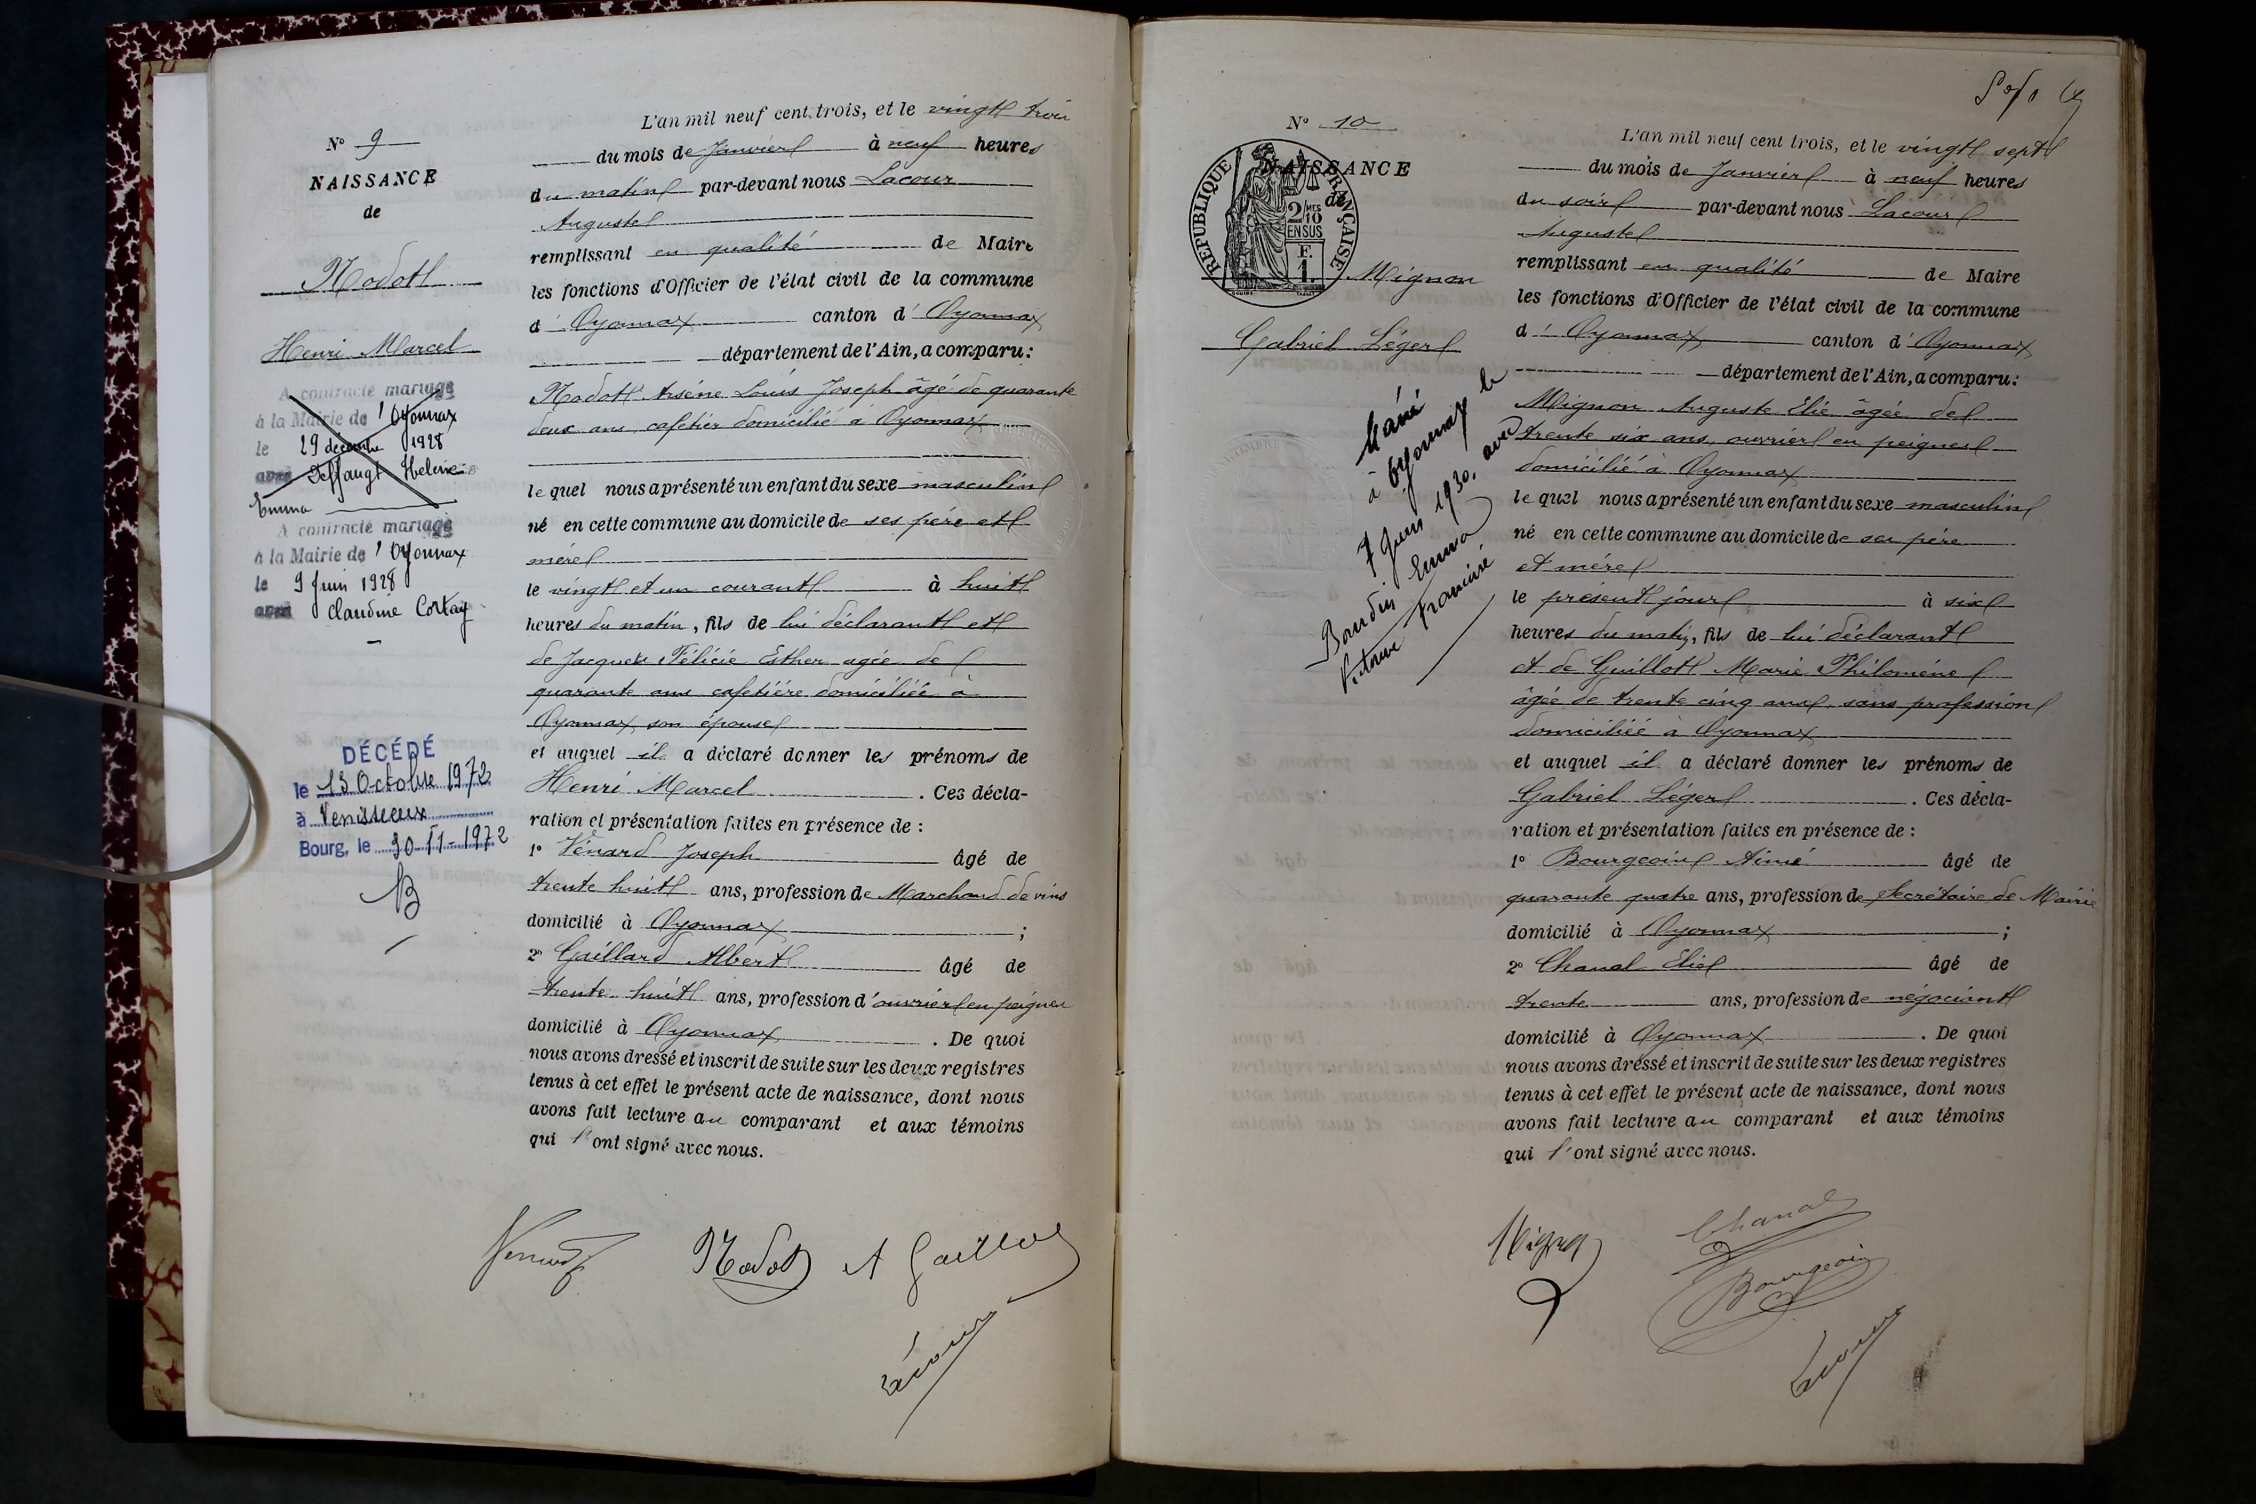 N° 9
NAISSANCE
de
Nodot
Henri Marcel
A contracté mariage
à la Mairie de Oyonnax
le 29 décembre 1928
avec Deffaugt Helene
Emma
A contracté mariage
à la Mairie de Oyonnax
le 9 Juin 1928
avec Claudine Cortay
DÉCÉDÉ
le 13 Octobre 1972
à Venissieux
Bourg, le 30-11-1972
L'an mil neuf cent trois, et le vingt trois
du mois de Janvier à neuf heures
du matin par-devant nous Lacour
Auguste
remplissant en qualité de Maire
les fonctions d'Officier de l'état civil de la commune
d'Oyonnax canton d'Oyonnax
département de l'Ain, a comparu:
Nodot Arsène Louis Joseph âgé de quarante
deux ans, cafetier domicilié à Oyonnax
le quel nous a présenté un enfant du sexe masculin
né en cette commune au domicile de ses père et
mère
le vingt et un courant à huit
heures du matin, fils de lui déclarant et
de Jacquet Félicie Esther agée de
quarante ans cafetière domiciliée à
Oyonnax, son épouse
et auquel il a déclaré donner les prénoms de
Henri Marcel. Ces décla-
ration et présentation faites en présence de :
1° Vénard Joseph âgé de
trente huit ans, profession de Marchand de vins
domicilié à Oyonnax ;
2° Gaillard Albert âgé de
trente huit ans, profession d'ouvrier en peignes
domicilié à Oyonnax. De quoi
nous avons dressé et inscrit de suite sur les deux registres
tenus à cet effet le présent acte de naissance, dont nous
avons fait lecture au comparant et aux témoins
qui l'ont signé avec nous.
Nodot A Gaillard
Lacour
N° 10
NAISSANCE
de
REPUBLIQUE FRANÇAISE
2/10 EN SUS
F. 1.
Mignon
Gabriel Léger
Marié
à Oyonnax le
7 Juin 1930, avec
Bondin Emma
Victorine Francine
L'an mil neuf cent trois, et le vingt sept
du mois de Janvier à neuf heures
du soir par-devant nous Lacour
Auguste
remplissant en qualité de Maire
les fonctions d'Officier de l'état civil de la commune
d'Oyonnax canton d'Oyonnax
département de l'Ain, a comparu:
Mignon Auguste Elie âgée de
trente six ans, ouvrier en peignes
domicilié à Oyonnax
le quel nous a présenté un enfant du sexe masculin
né en cette commune au domicile de ses père
et mère
le présent jour à six
heures du matin, fils de lui déclarant
et de Guillot Marie Philomène
âgée de trente cinq ans, sans profession
domiciliée à Oyonnax
et auquel il a déclaré donner les prénoms de
Gabriel Léger. Ces décla-
ration et présentation faites en présence de :
1° Bourgeois Aimé âgé de
quarante quatre ans, profession de Secrétaire de Mairie
domicilié à Oyonnax ;
2° Chanal Elie âgé de
trente ans, profession de négociant
domicilié à Oyonnax. De quoi
nous avons dressé et inscrit de suite sur les deux registres
tenus à cet effet le présent acte de naissance, dont nous
avons fait lecture au comparant et aux témoins
qui l'ont signé avec nous.
Mignon Chanal
Bourgeois
Lacour